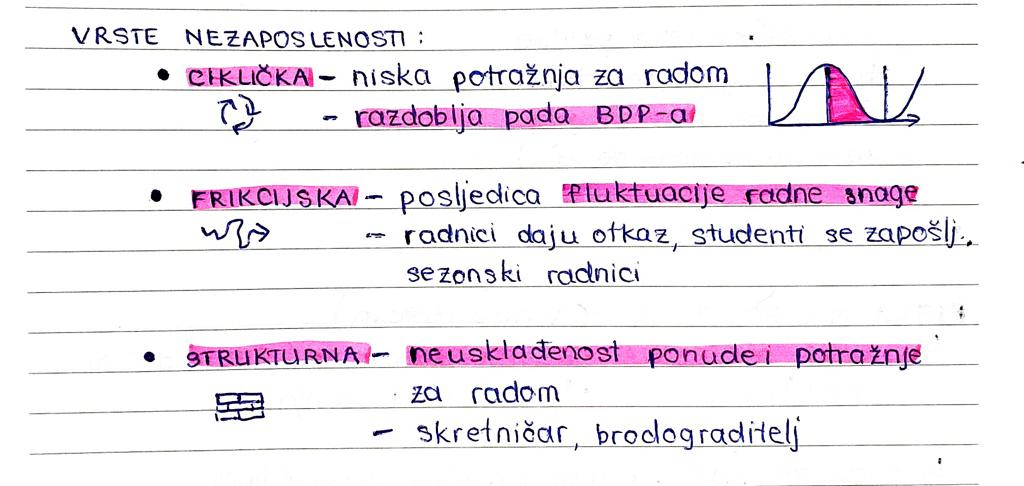 VRSTE NEZAPOSLENOSTI :
• CIKLIČKA – niska potražnja za radom
– razdoblja pada BDP-a
• FRIKCIJSKA – posljedica fluktuacije radne snage
– radnici daju otkaz, studenti se zapošlj.,
sezonski radnici
• STRUKTURNA – neusklađenost ponude i potražnje
za radom
– skretničar, brodograditelj